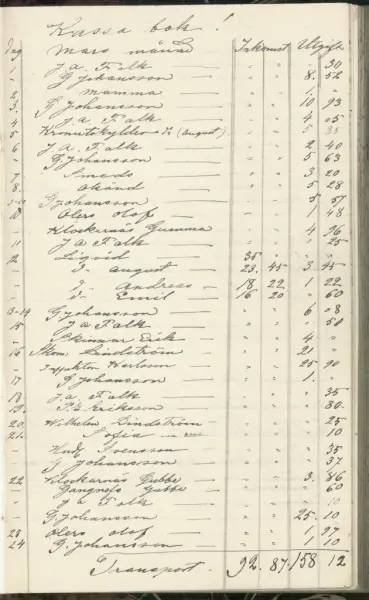 Kassa bok!
Dag Mars månad Inkomst Utgift
1 J. A. Falk — " " " 30
- G Johansson — " " 8. 52
2 mamma — " " 1 "
3. G Johansson — " " 10 93
4 J. A. Falk — " " 4 05
5 (august) " " 5 35
6 J A. Falk — " " 2 40
- G. Johansson — " " 5 63
7 Smeds — " " 3 20
8. okänd — " " 5 28
G Johansson — " " 5 57
10 Olers Olof — " " 1 48
- Klockernas Gumma " " 4 96
11 J A Falk — " " " 25
12 35 "
- D. august — 23. 45 3 45
- D. Andreas — 18 22 1 22
- D. Emil — 16 20 " 60
13-14 G Johansson — " " 6 08
15 J A Falk — " " " 50
- Erik — " " 4 "
16 Lindström — " " 21 "
- Karlsson — " " 25 90
17 G Johansson — " " 1.
18 J. A. Falk — " " " 35
19. Eriksson — " " " 80.
20. Wilhelm Lindström — " " " 25
21. Sofia — " " " 10
- Svensson — " " " 35
- G Johansson — " " " 37
22 Klockarnas Gubbe — " " 3. 86
- Gubbe — " " " 60
- J A Falk — " " " 10
- G Johansson — " " 25. 10
23 Olers Olof — " " 1 97
24 G. Johansson — " " 1 10
Transport. 92. 87. 158 12